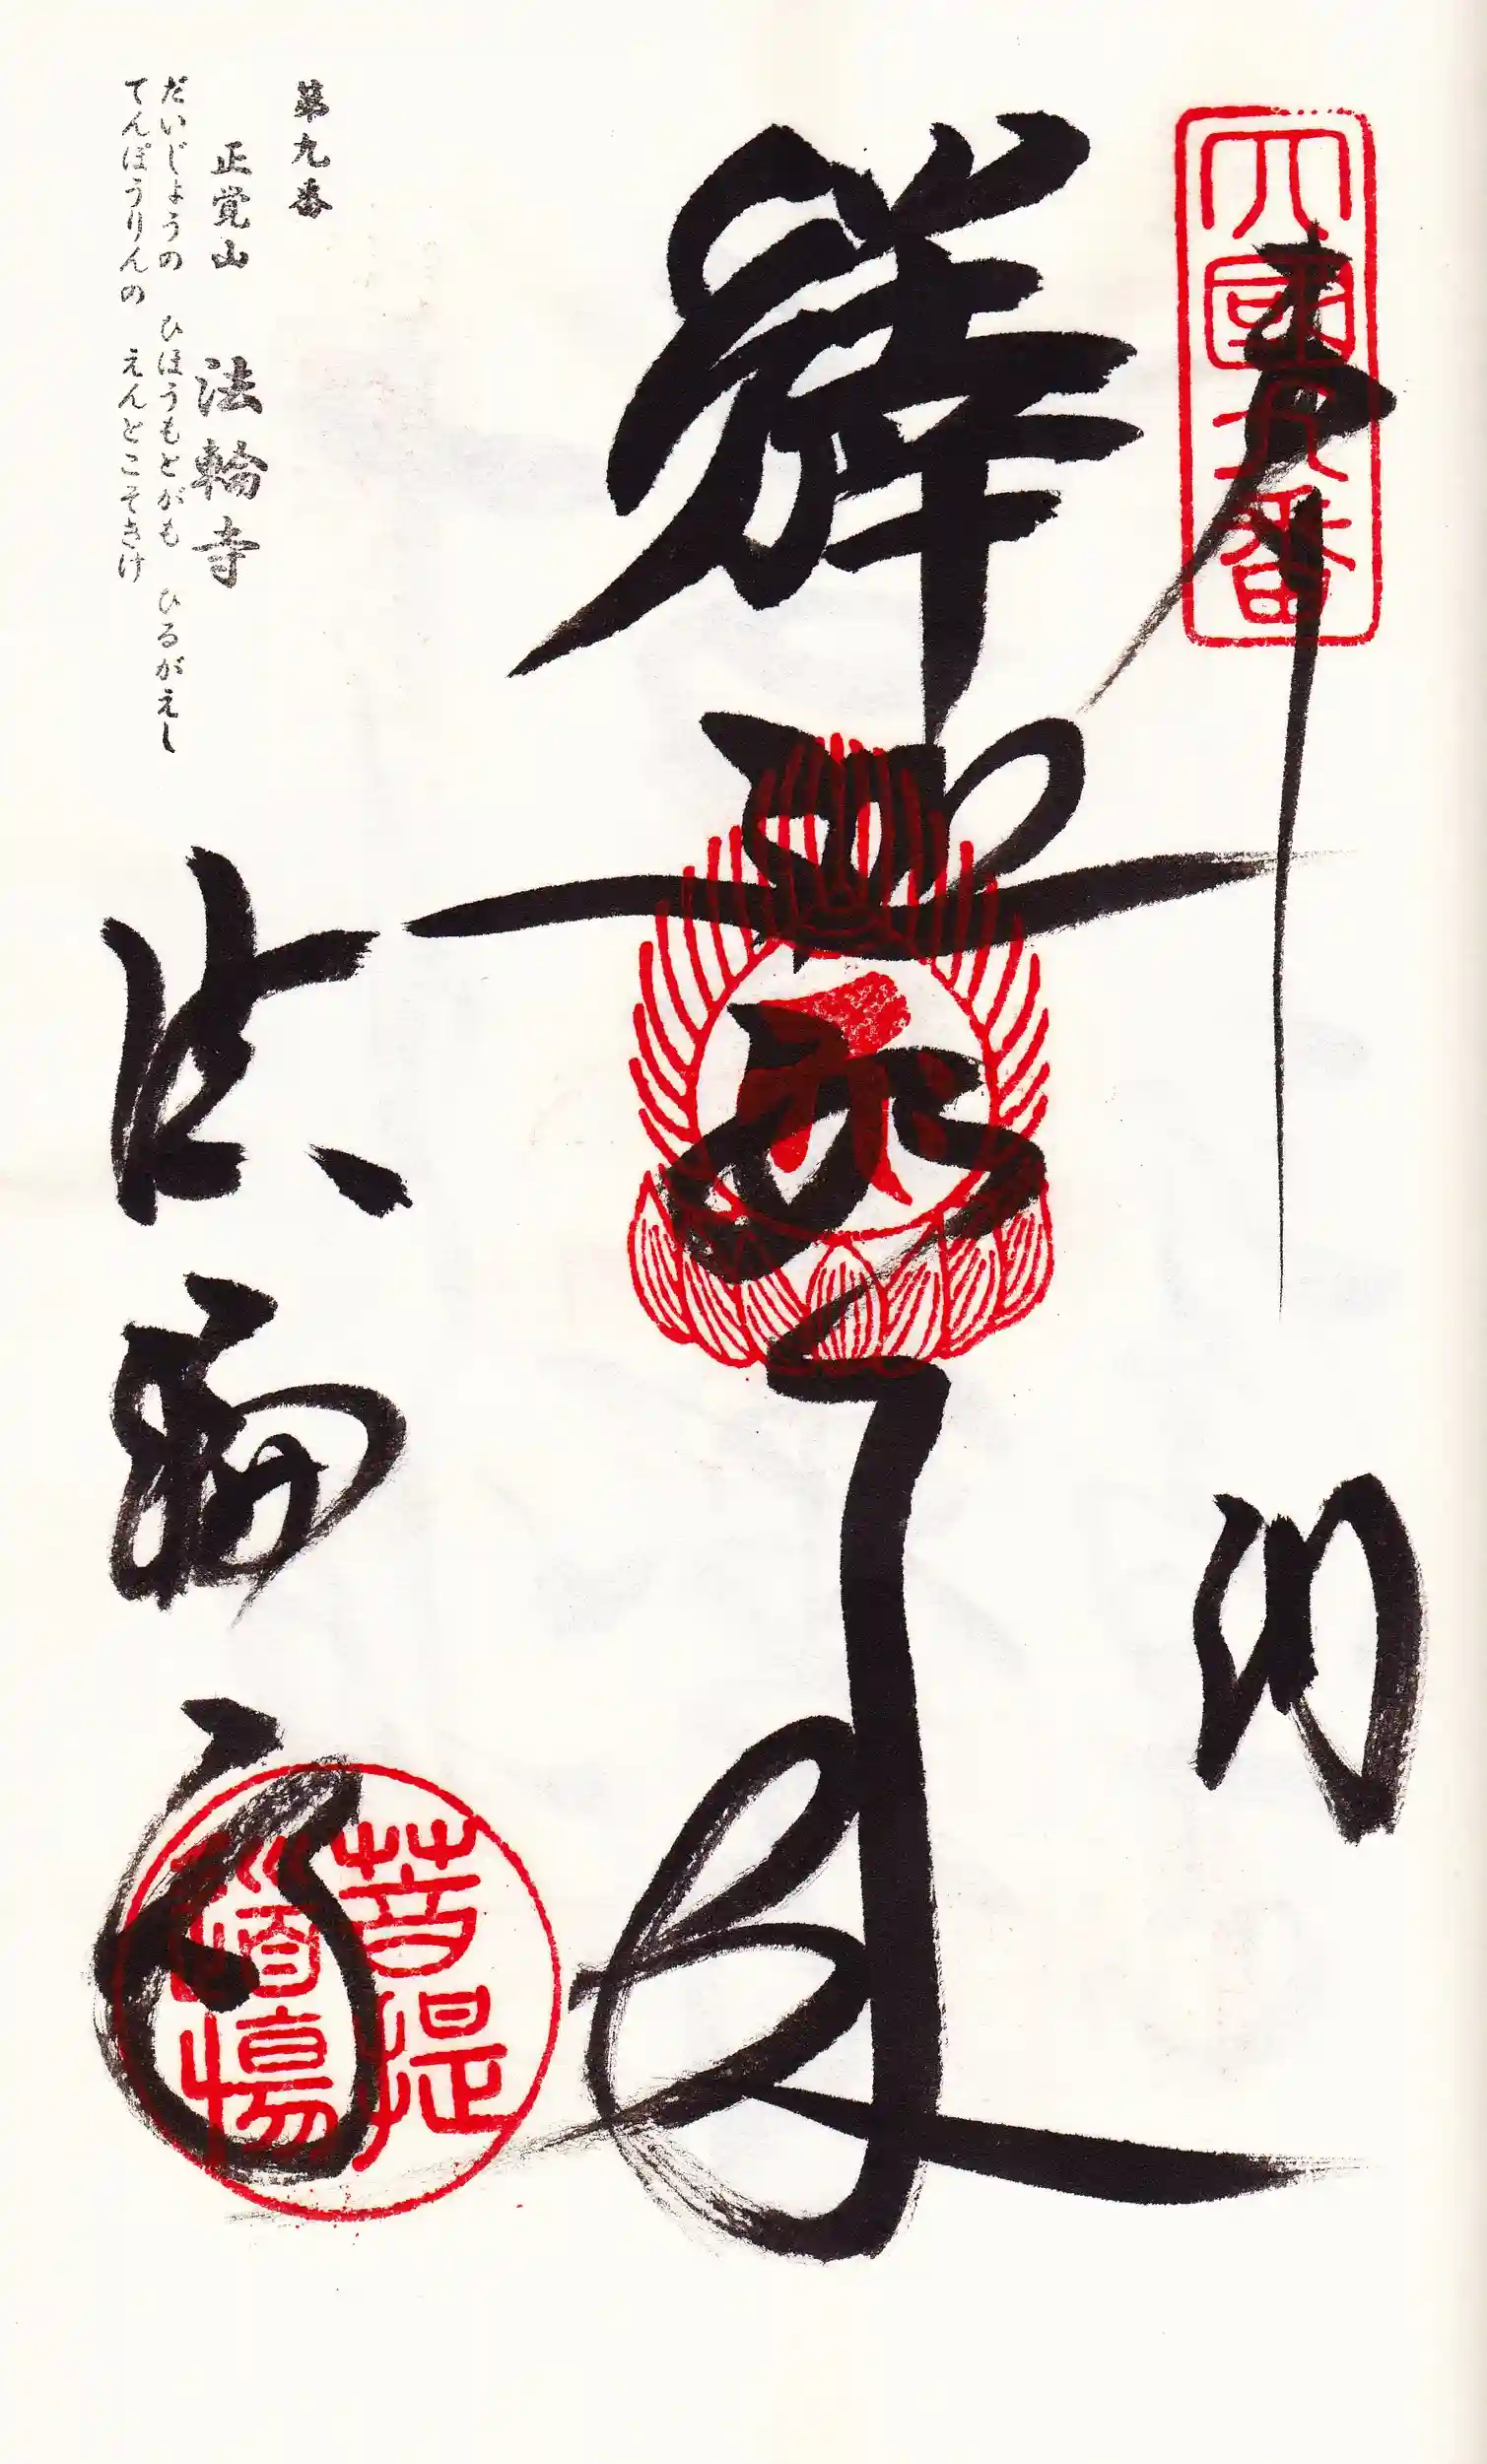 四國九番
奉納
釋迦如来
法輪寺
菩提
道場
第九番
正覚山 法輪寺
だいじょうの ひほうもとがも ひるがえし
てんぽうりんの えんとこそきけ